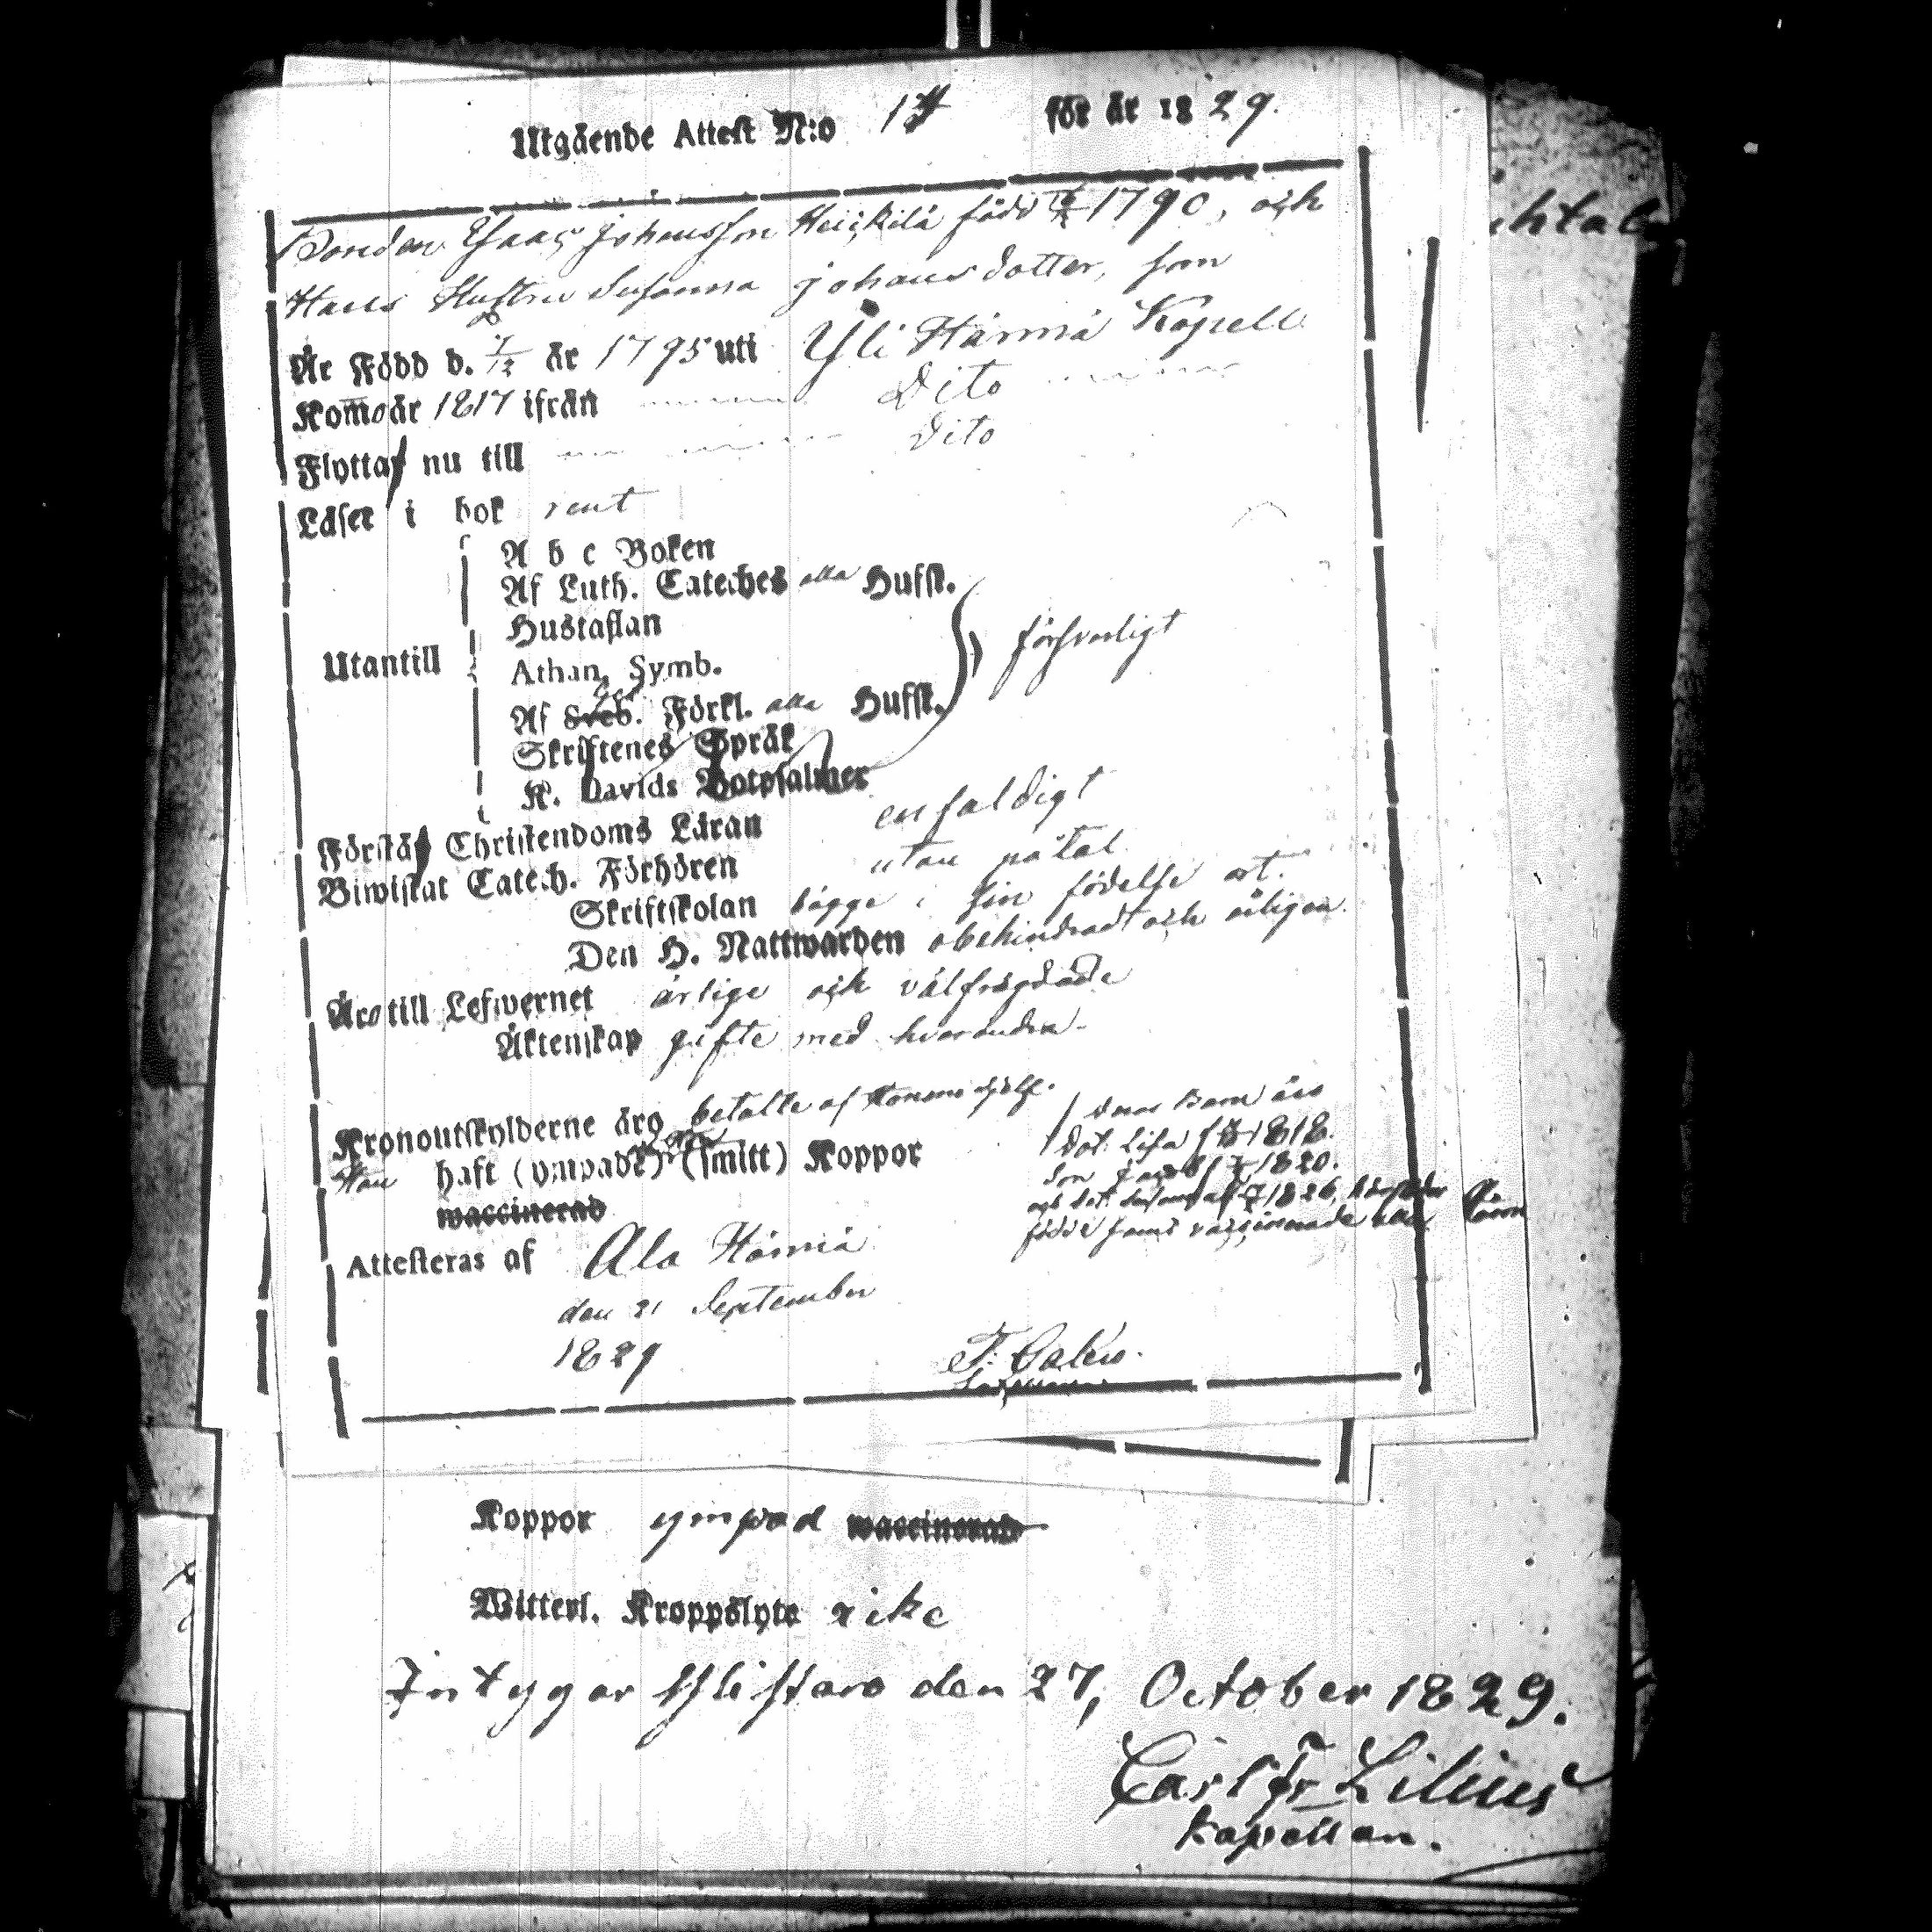 Utgående Attest N:o 1 för år 1829.
Bonden Isaac Johansson Heickilä född 1790, och
Hans Hustru Susanna Johansdotter, som
Är Född d. 7/12 år 1795 uti Yli Härmä Kapell
Komo år 1817 ifrån Dito
Flytta nu till Dito
Läser i bok rent
A b c Boken
Af Luth. Cateches alla Hufst.
Hustaflan
Utantill
Athan. Symb.
försvarligt
Af Sveb. Förkl. alla Hufst.
Skriftenes Språk
K. Davids Botpsalmer
Förstå Christendoms Läran enfaldigt
Biwistat Catech. Förhören utan påtal
Skriftskolan bägge i sin födelse ort.
Den H. Nattwarden obehindradt och årligen.
Äro till Lefwernet ärlige och välfrägdade
Äktenskap gifte med hvarandra.
Kronoutskylderne äro betalte af
haft (ympade) (smitt) Koppor
waccinerad
deras Barn äro
dot. Lisa f 1818.
Son Jacob f 1820.
och dot. Susanna f 1826, härstädes
födde samt vaccinerade
Attesteras af Ala Härmä
den 21 September
1829
Koppor ympad waccinerad
Witterl. Kroppslyte icke
Intygar Ylistaro den 27, October 1829.
Carl Fr Lilius
Kapellan.